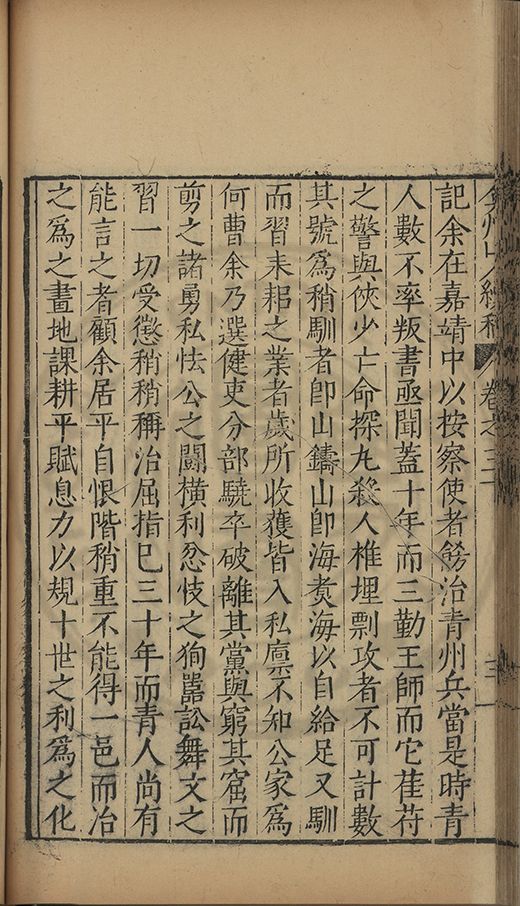 弇州山人續稿 卷之三
記余在嘉靖中以按察使者飭治青州兵當是時青
人數不率叛書亟聞蓋十年而三勤王師而它萑苻
之警與俠少亡命探丸殺人椎埋剽攻者不可計數
其號為稍馴者即山鑄山即海煑海以自給足又馴
而習耒耜之業者歲所收獲皆入私廩不知公家為
何曹余乃選健吏分部驍卒破離其黨與窮其窟而
剪之諸勇私怯公之鬪橫利忿忮之狥嚚訟舞文之
習一切受懲稍稍稱治屈指已三十年而青人尚有
能言之者顧余居平自恨階稍重不能得一邑而治
之為之畫地課耕平賦息力以規十世之利為之化